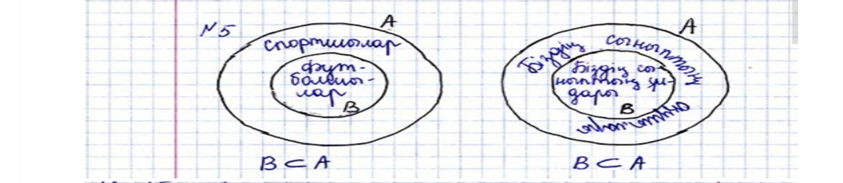 №5
A
спортшылар
фут-
болшы-
лар
B
B ⊂ A
A
Біздің сыныптың
оқушылары
Біздің сы-
ныптың ұл-
дары
B
B ⊂ A